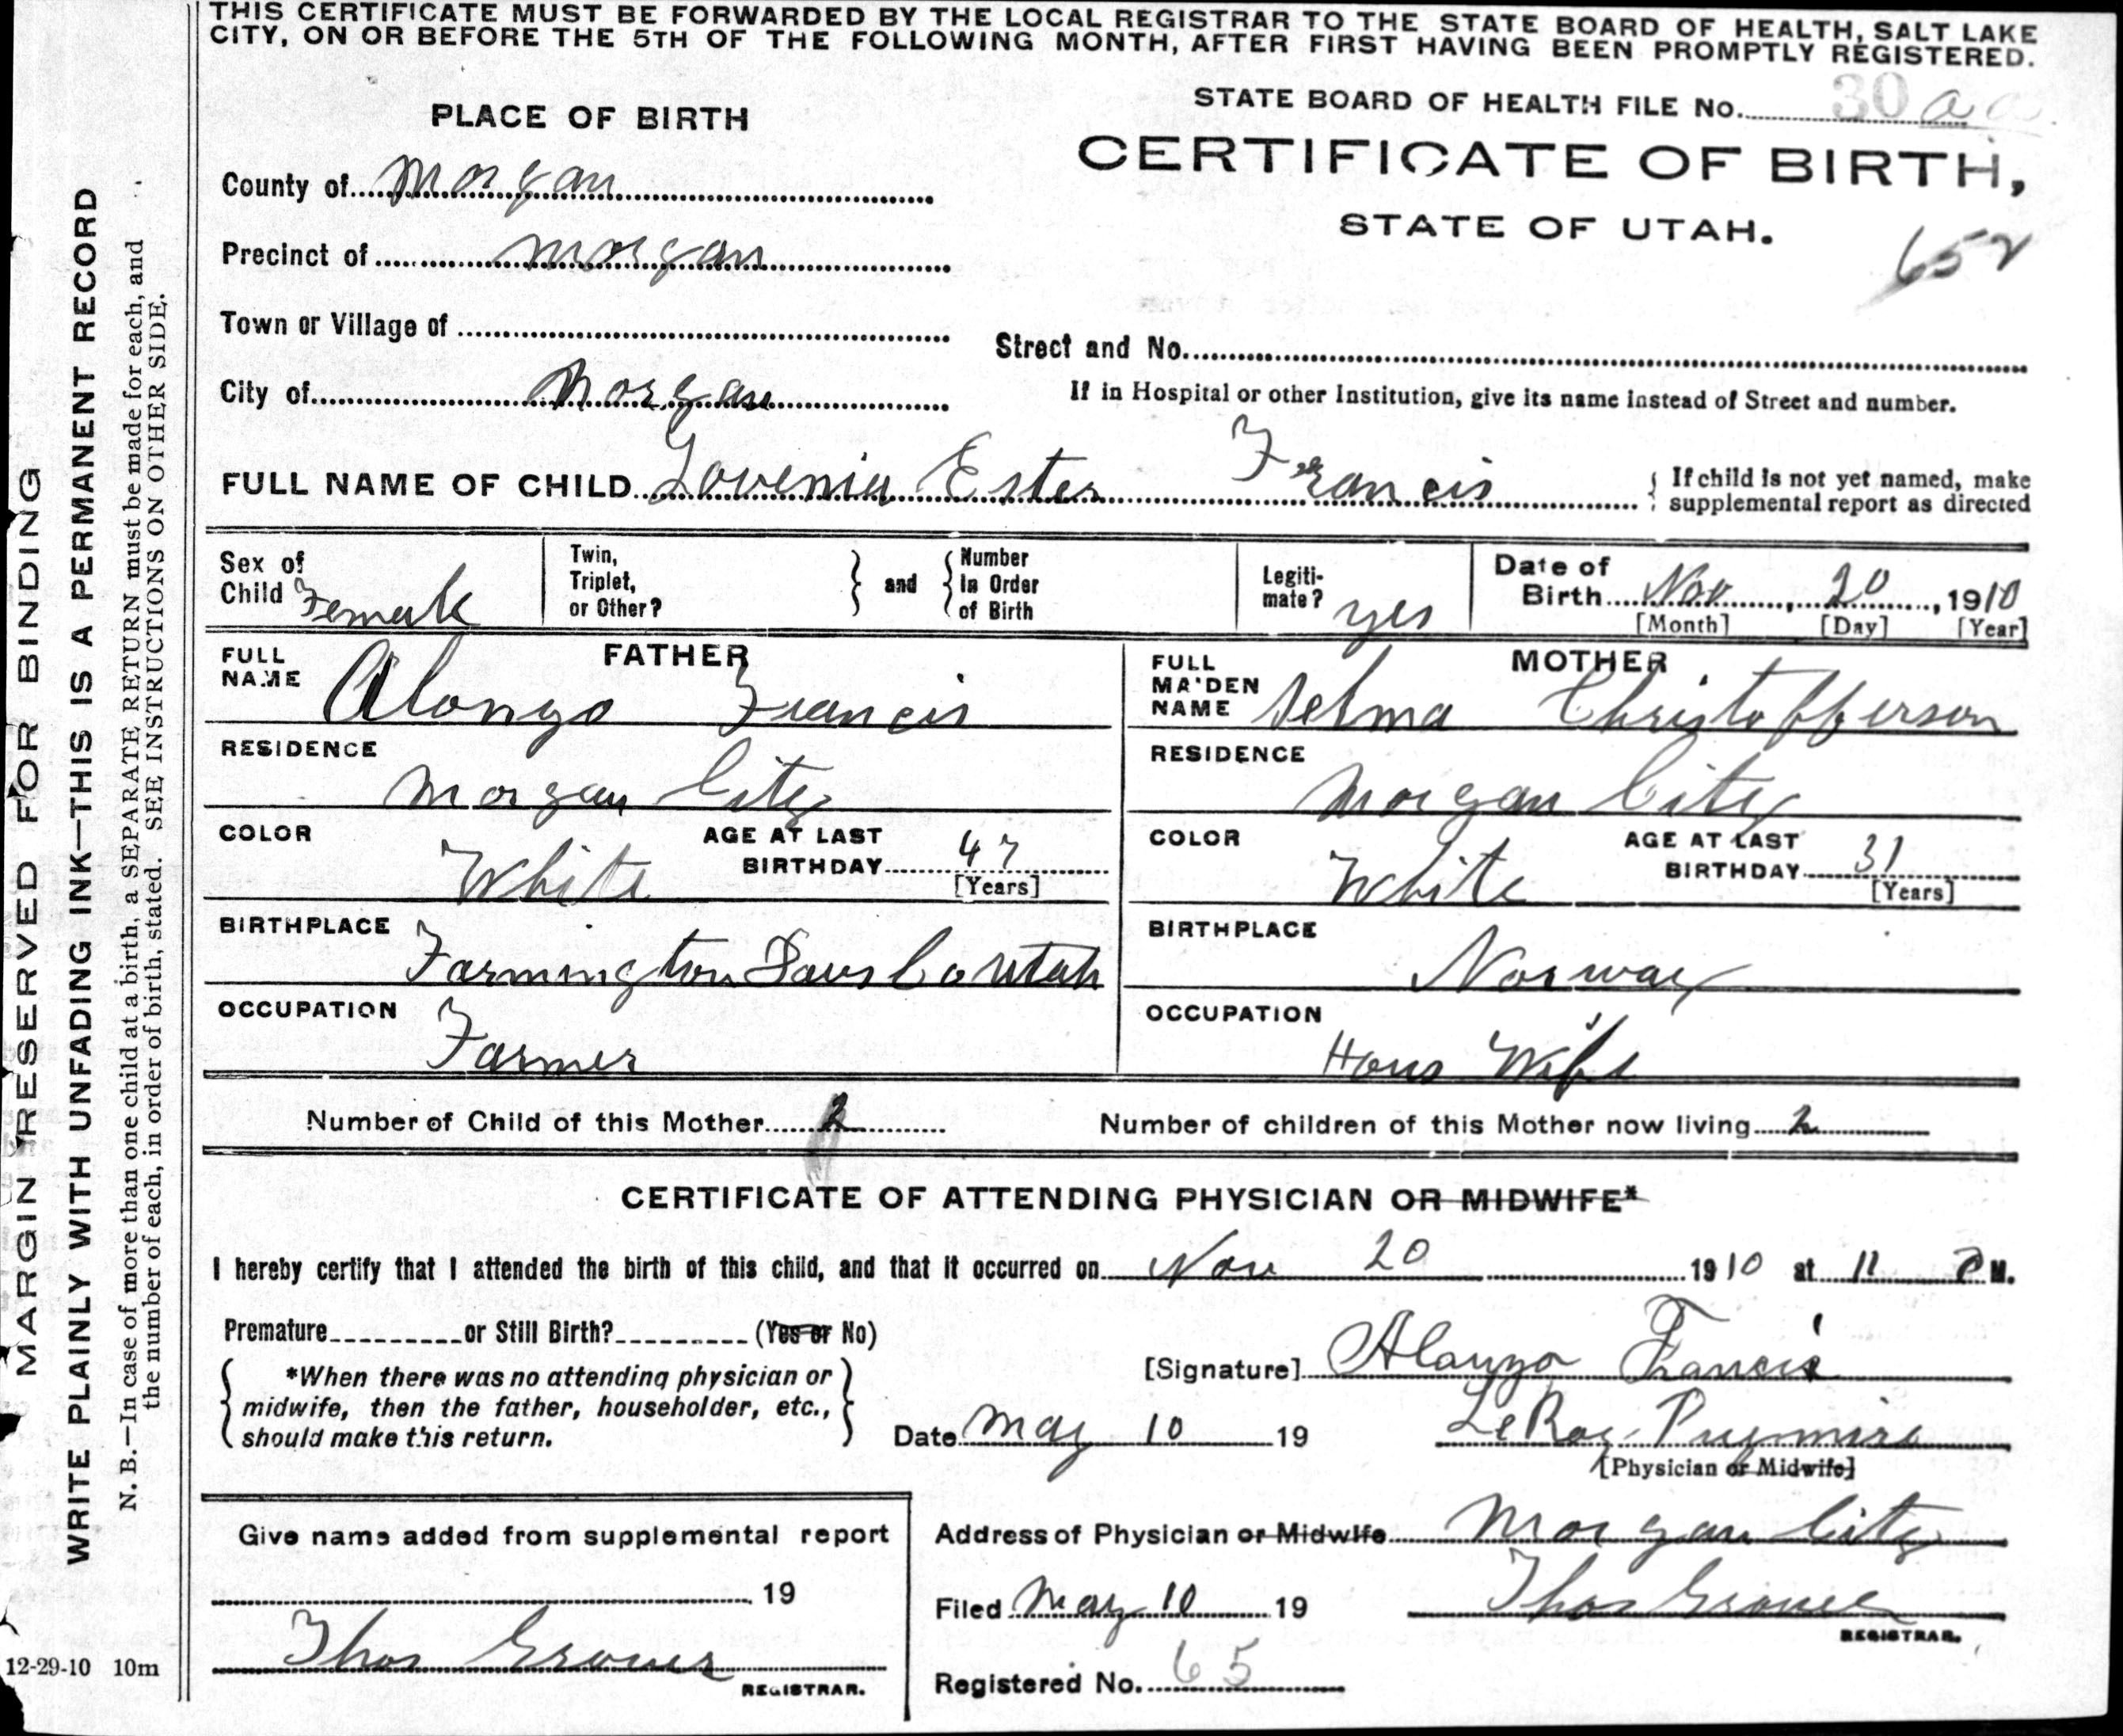 THIS CERTIFICATE MUST BE FORWARDED BY THE LOCAL REGISTRAR TO THE STATE BOARD OF HEALTH, SALT LAKE
CITY, ON OR BEFORE THE 5TH OF THE FOLLOWING MONTH, AFTER FIRST HAVING BEEN PROMPTLY REGISTERED.
STATE BOARD OF HEALTH FILE No. 30 a
PLACE OF BIRTH
CERTIFICATE OF BIRTH,
STATE OF UTAH.
652
County of Morgan
Precinct of Morgan
Town or Village of
Street and No.
City of Morgan
If in Hospital or other Institution, give its name instead of Street and number.
FULL NAME OF CHILD Lovenia Ester Francis
If child is not yet named, make
supplemental report as directed
Sex of Child Female
Twin, Triplet, or Other?
and
Number in Order of Birth
Legiti-mate? yes
Date of Birth Nov 20, 1910
[Month] [Day] [Year]
FATHER
FULL NAME Alonzo Francis
MOTHER
FULL MAIDEN NAME Selma Christofferson
RESIDENCE Morgan City
RESIDENCE Morgan City
COLOR White AGE AT LAST BIRTHDAY 47 [Years]
COLOR White AGE AT LAST BIRTHDAY 31 [Years]
BIRTHPLACE Farmington Davis Co Utah
BIRTHPLACE Norway
OCCUPATION Farmer
OCCUPATION Hous Wife
Number of Child of this Mother 2
Number of children of this Mother now living 2
CERTIFICATE OF ATTENDING PHYSICIAN OR MIDWIFE*
I hereby certify that I attended the birth of this child, and that it occurred on Nov 20 1910 at 11 P M.
Premature or Still Birth? (Yes or No)
*When there was no attending physician or
midwife, then the father, householder, etc.,
should make this return.
[Signature] Alonzo Francis
Date May 10 19
LeRoy Pugmire
[Physician or Midwife]
Give name added from supplemental report
19
Thos Grover
REGISTRAR.
Address of Physician or Midwife Morgan City
Filed May 10 19
Thos Grover
REGISTRAR.
Registered No. 65
MARGIN RESERVED FOR BINDING
WRITE PLAINLY WITH UNFADING INK—THIS IS A PERMANENT RECORD
N. B.—In case of more than one child at a birth, a SEPARATE RETURN must be made for each, and
the number of each, in order of birth, stated. SEE INSTRUCTIONS ON OTHER SIDE.
12-29-10 10m